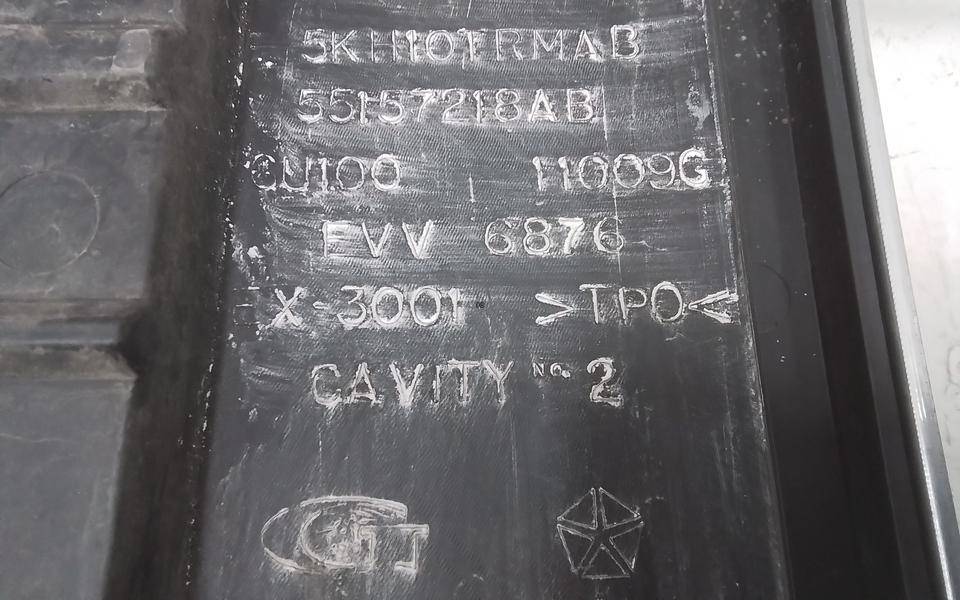 5KH10TRMAB
55157218AB
CU100 11009G
EVV 6876
X-3001 >TPO<
CAVITY No. 2